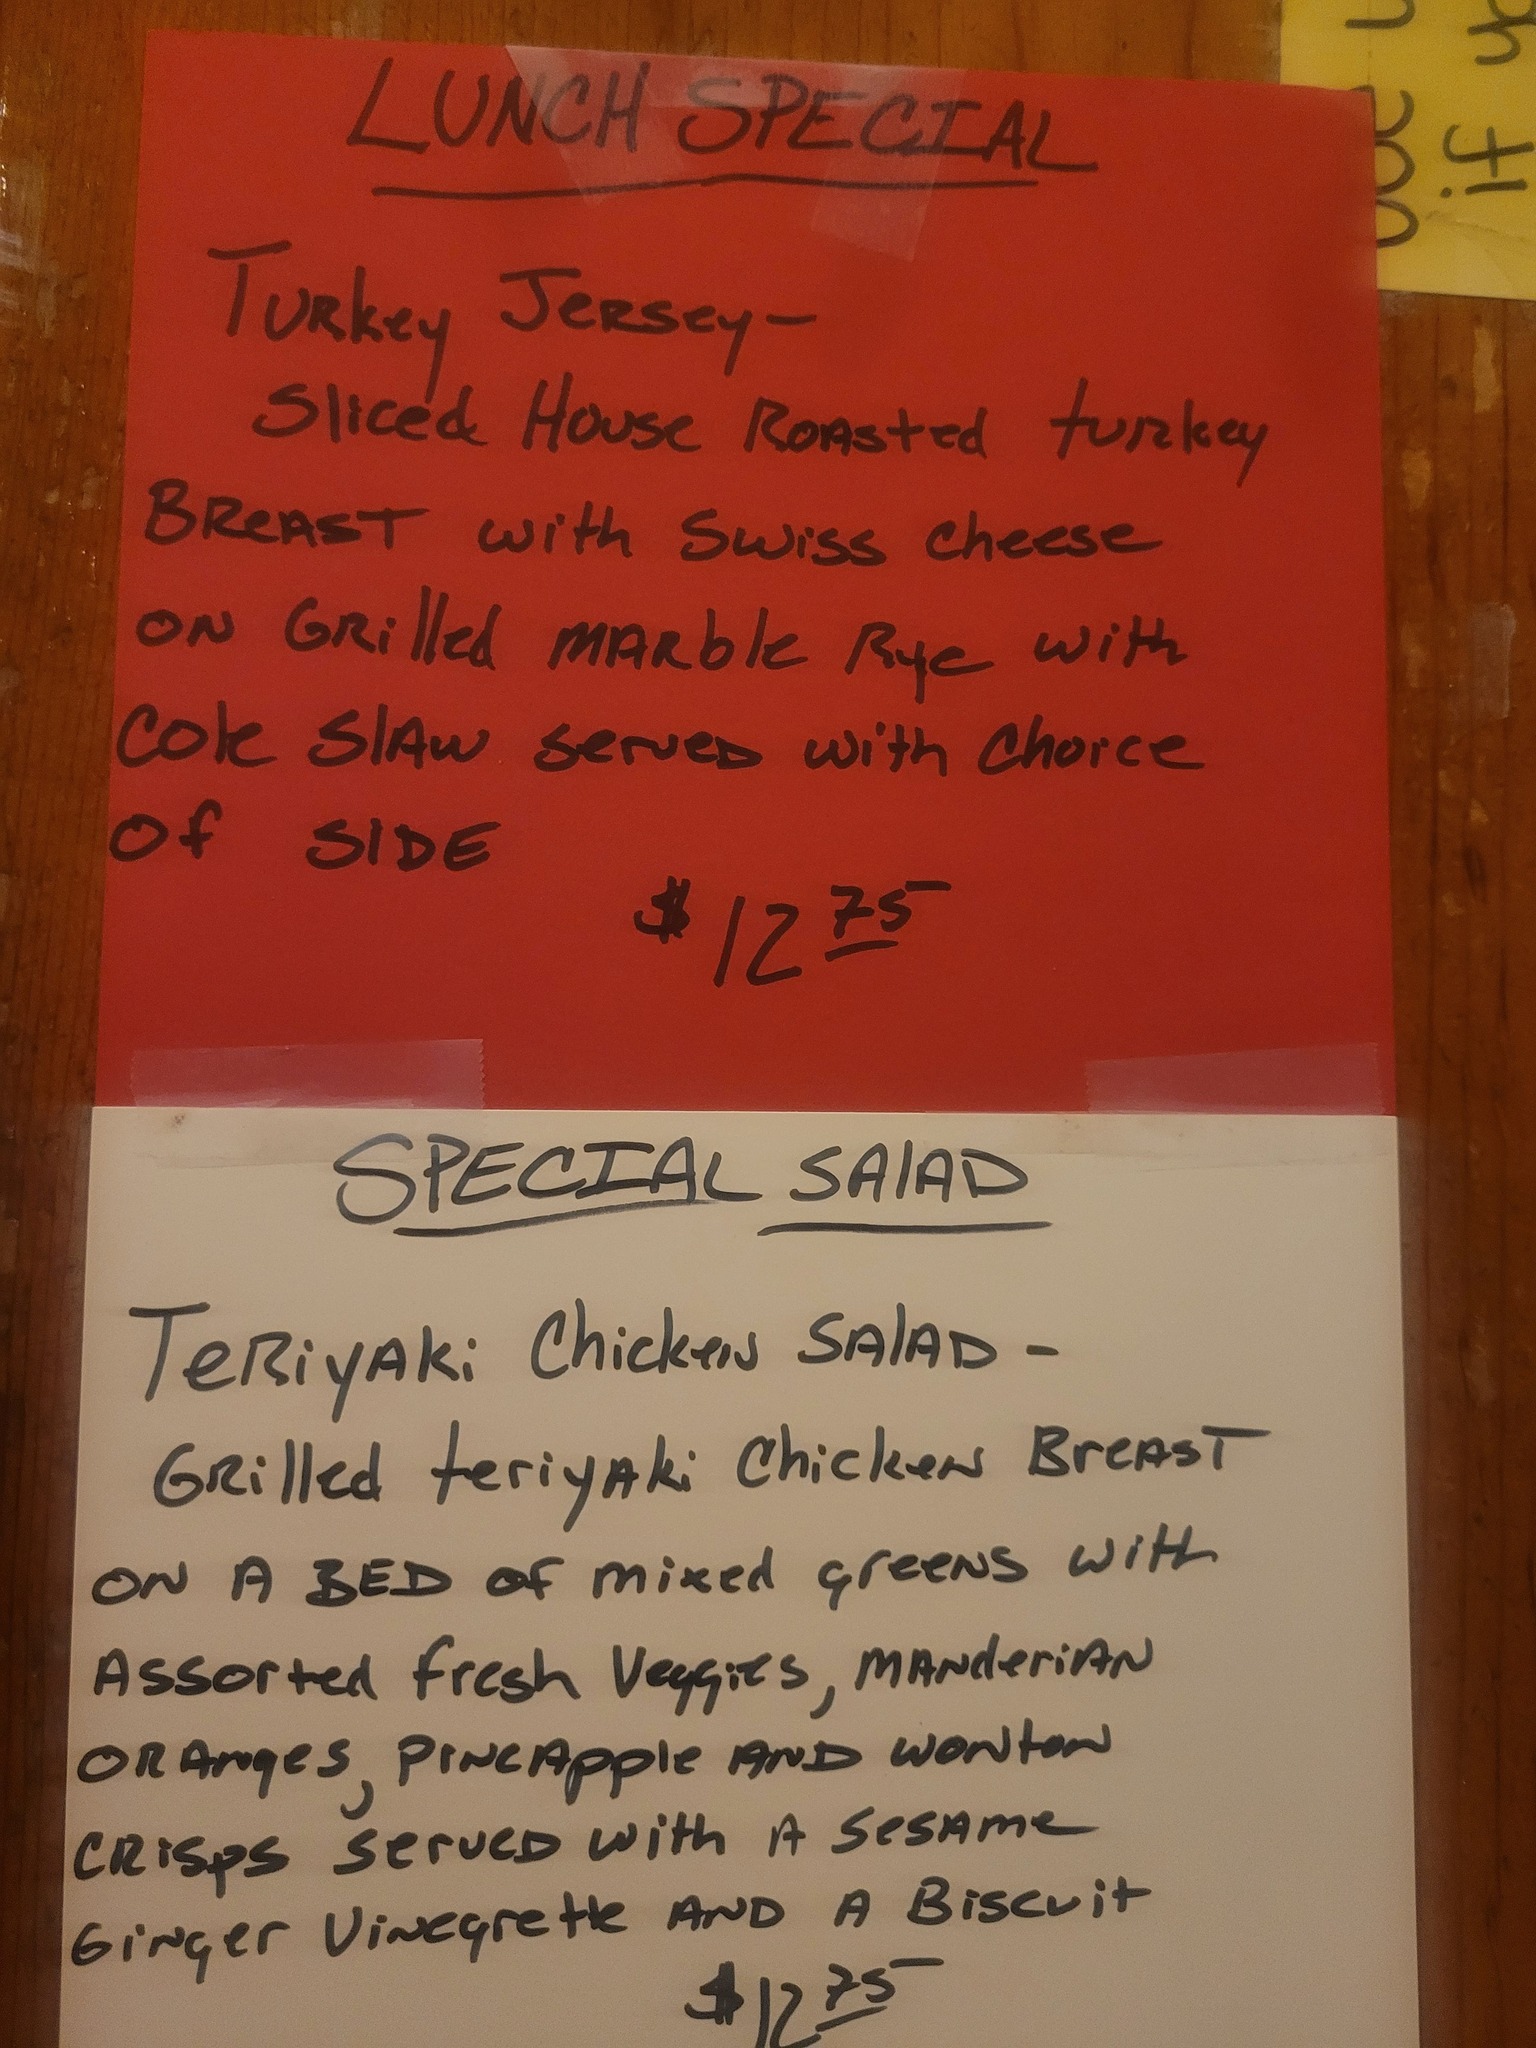 LUNCH SPECIAL
Turkey Jersey-
Sliced House Roasted turkey
Breast with Swiss cheese
on Grilled marble Rye with
Cole Slaw served with choice
of SIDE
$12 75
SPECIAL SALAD
Teriyaki Chicken SALAD-
Grilled teriyaki Chicken Breast
on A BED of mixed greens with
Assorted fresh Veggies, manderian
oranges, pineapple AND wonton
crisps served with A sesame
Ginger Vinegrette AND A Biscuit
$12 75
if yo